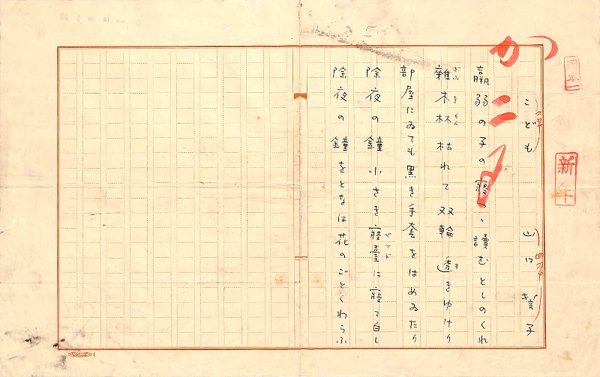 新年
こども　山口誓子
羸弱の子の寝つゝ讀むとしのくれ
雜木林枯れて双輪透きゆけり
部屋にゐても黒き手套をはめゐたり
除夜の鐘小さき寢臺に寢て白し
ベッド
除夜の鐘をとなは花のごとくわらふ